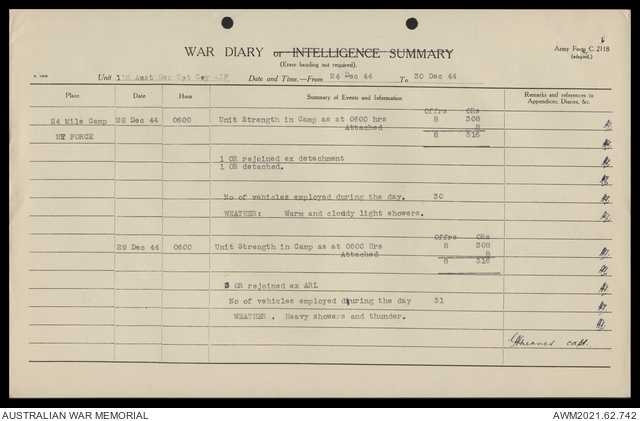 WAR DIARY or INTELLIGENCE SUMMARY
(Erase heading not required).
Army Form C. 2118
(adapted.)
Unit 118 Aust Gen Tpt Coy AIF Date and Time.—From 24 Dec 44 To 30 Dec 44
Place Date Hour Summary of Events and Information Remarks and references to Appendices, Diaries, &c.
Offrs ORs
24 Mile Camp 28 Dec 44 0600 Unit Strength in Camp as at 0600 hrs 8 308
Attached 8
NT FORCE 8 316
1 OR rejoined ex detachment
1 OR detached.
No of vehicles employed during the day. 30
WEATHER: Warm and cloudy light showers.
Offrs ORs
29 Dec 44 0600 Unit Strength in Camp as at 0600 Hrs 8 308
Attached 8
8 316
3 OR rejoined ex ARL
No of vehicles employed during the day 31
WEATHER . Heavy showers and thunder.
capt.
AUSTRALIAN WAR MEMORIAL AWM2021.62.742